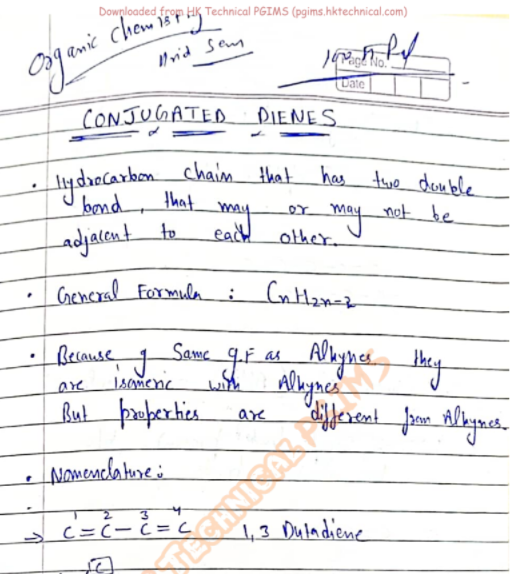 Downloaded from HK Technical PGIMS (pgims.hktechnical.com)
Organic Chemistry
Mid Sem
Page No.
Date
CONJUGATED DIENES
• Hydrocarbon chain that has two double
bond, that may or may not be
adjacent to each other.
• General Formula : CnH2n-2
• Because of Same g.F as Alkynes they
are isomeric with Alkynes
But properties are different from Alkynes.
• Nomenclature:
1 2 3 4
→ C=C-C=C 1,3 Butadiene
C
HK TECHNICAL PGIMS